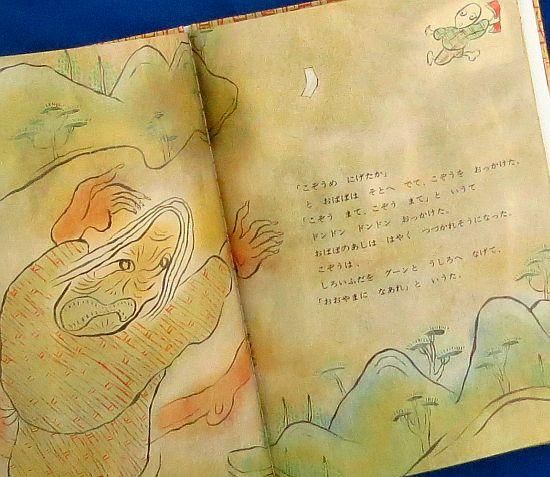 「こぞうめ にげたか」
と おばばは そとへ でて、こぞうを おっかけた。
「こぞう まて、こぞう まて」と いうて
ドンドン ドンドン おっかけた。
おばばのあしは はやく つづかれそうになった。
こぞうは、
しろいふだを グーンと うしろへ なげて、
「おおやまに なあれ」と いうた。